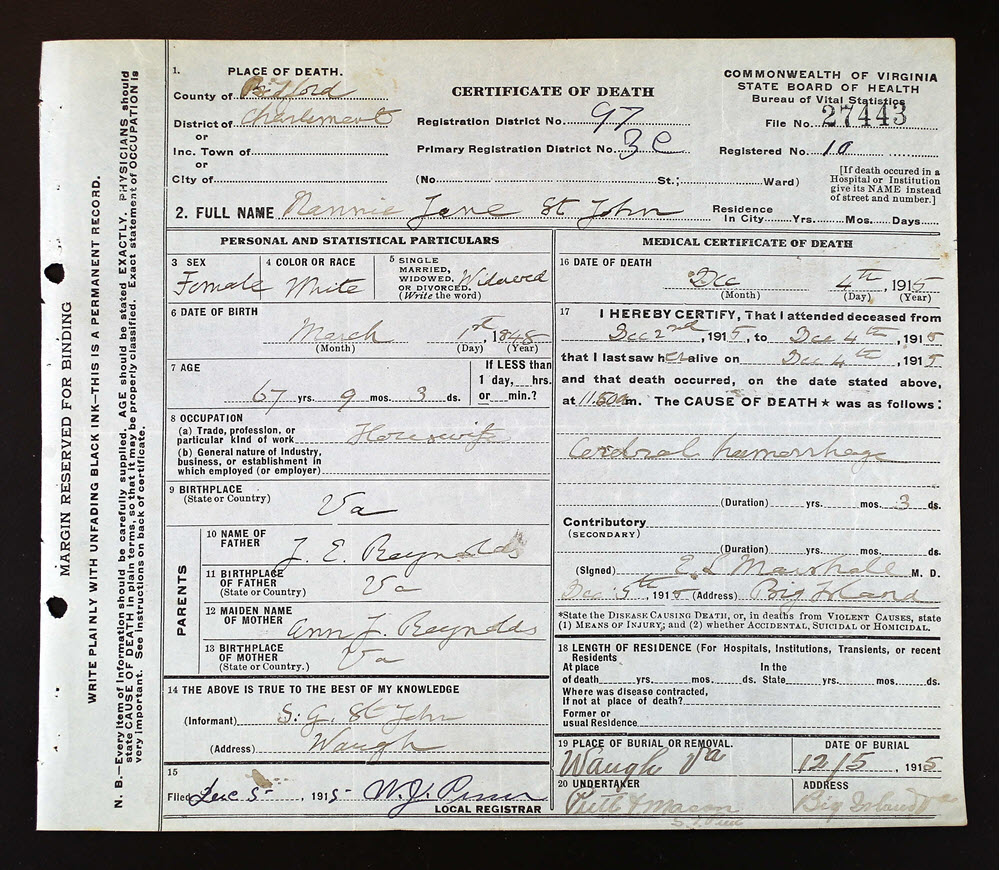 MARGIN RESERVED FOR BINDING
WRITE PLAINLY WITH UNFADING BLACK INK—THIS IS A PERMANENT RECORD.
N. B.—Every item of Information should be carefully supplied. AGE should be stated EXACTLY. PHYSICIANS should
state CAUSE OF DEATH in plain terms, so that it may be properly classified. Exact statement of OCCUPATION is
very important. See instructions on back of certificate.
1. PLACE OF DEATH.
County of Bedford
District of Charlemont
or
Inc. Town of
or
City of
CERTIFICATE OF DEATH
Registration District No. 97
Primary Registration District No. 3C
(No. St.; Ward)
COMMONWEALTH OF VIRGINIA
STATE BOARD OF HEALTH
Bureau of Vital Statistics
File No. 27443
Registered No. 10
[If death occured in a
Hospital or Institution
give its NAME instead
of street and number.]
2. FULL NAME Nannie Jane St John
Residence
In City Yrs. Mos. Days
PERSONAL AND STATISTICAL PARTICULARS
3 SEX
Female
4 COLOR OR RACE
White
5 SINGLE
MARRIED,
WIDOWED,
OR DIVORCED.
(Write the word)
Widowed
6 DATE OF BIRTH
March 1st, 1848
(Month) (Day) (Year)
7 AGE
67 yrs. 9 mos. 3 ds.
If LESS than
1 day, hrs.
or min.?
8 OCCUPATION
(a) Trade, profession, or
particular kind of work Housewife
(b) General nature of Industry,
business, or establishment in
which employed (or employer)
9 BIRTHPLACE
(State or Country)
Va
PARENTS
10 NAME OF
FATHER
J. E. Raynolds
11 BIRTHPLACE
OF FATHER
(State or Country)
Va
12 MAIDEN NAME
OF MOTHER
Ann J. Reynolds
13 BIRTHPLACE
OF MOTHER
(State or Country.)
Va
14 THE ABOVE IS TRUE TO THE BEST OF MY KNOWLEDGE
(Informant) S. G. St John
(Address) Waugh
15
Filed Dec 5, 1915 W. J.
LOCAL REGISTRAR
MEDICAL CERTIFICATE OF DEATH
16 DATE OF DEATH
Dec 4th, 1915
(Month) (Day) (Year)
17 I HEREBY CERTIFY, That I attended deceased from
Dec 2nd, 1915, to Dec 4th, 1915
that I last saw her alive on Dec 4th, 1915
and that death occurred, on the date stated above,
at 11.50 a m. The CAUSE OF DEATH * was as follows:
Cerebral hemorrhage
(Duration) yrs. mos. 3 ds.
Contributory
(SECONDARY)
(Duration) yrs. mos. ds.
(Signed) E. L Marshall M. D.
Dec 5th, 1915 (Address) Big Island
*State the DISEASE CAUSING DEATH, or, in deaths from VIOLENT CAUSES, state
(1) MEANS OF INJURY; and (2) whether ACCIDENTAL, SUICIDAL or HOMICIDAL.
18 LENGTH OF RESIDENCE (For Hospitals, Institutions, Transients, or recent
Residents
At place In the
of death yrs. mos. ds. State yrs. mos. ds.
Where was disease contracted,
If not at place of death?
Former or
usual Residence
19 PLACE OF BURIAL OR REMOVAL.
Waugh Va
DATE OF BURIAL
12/5, 1915
20 UNDERTAKER
Mason
ADDRESS
Big Island Va